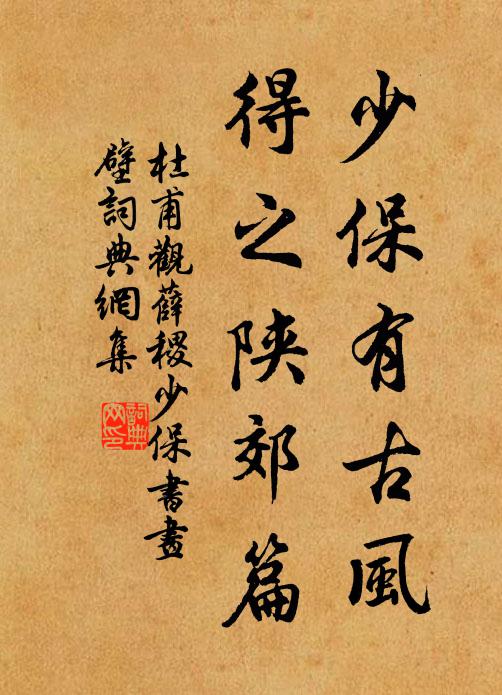 少保有古風
得之陕郊篇
杜甫觀薛稷少保書畫
壁詞典網集
詞典
網印